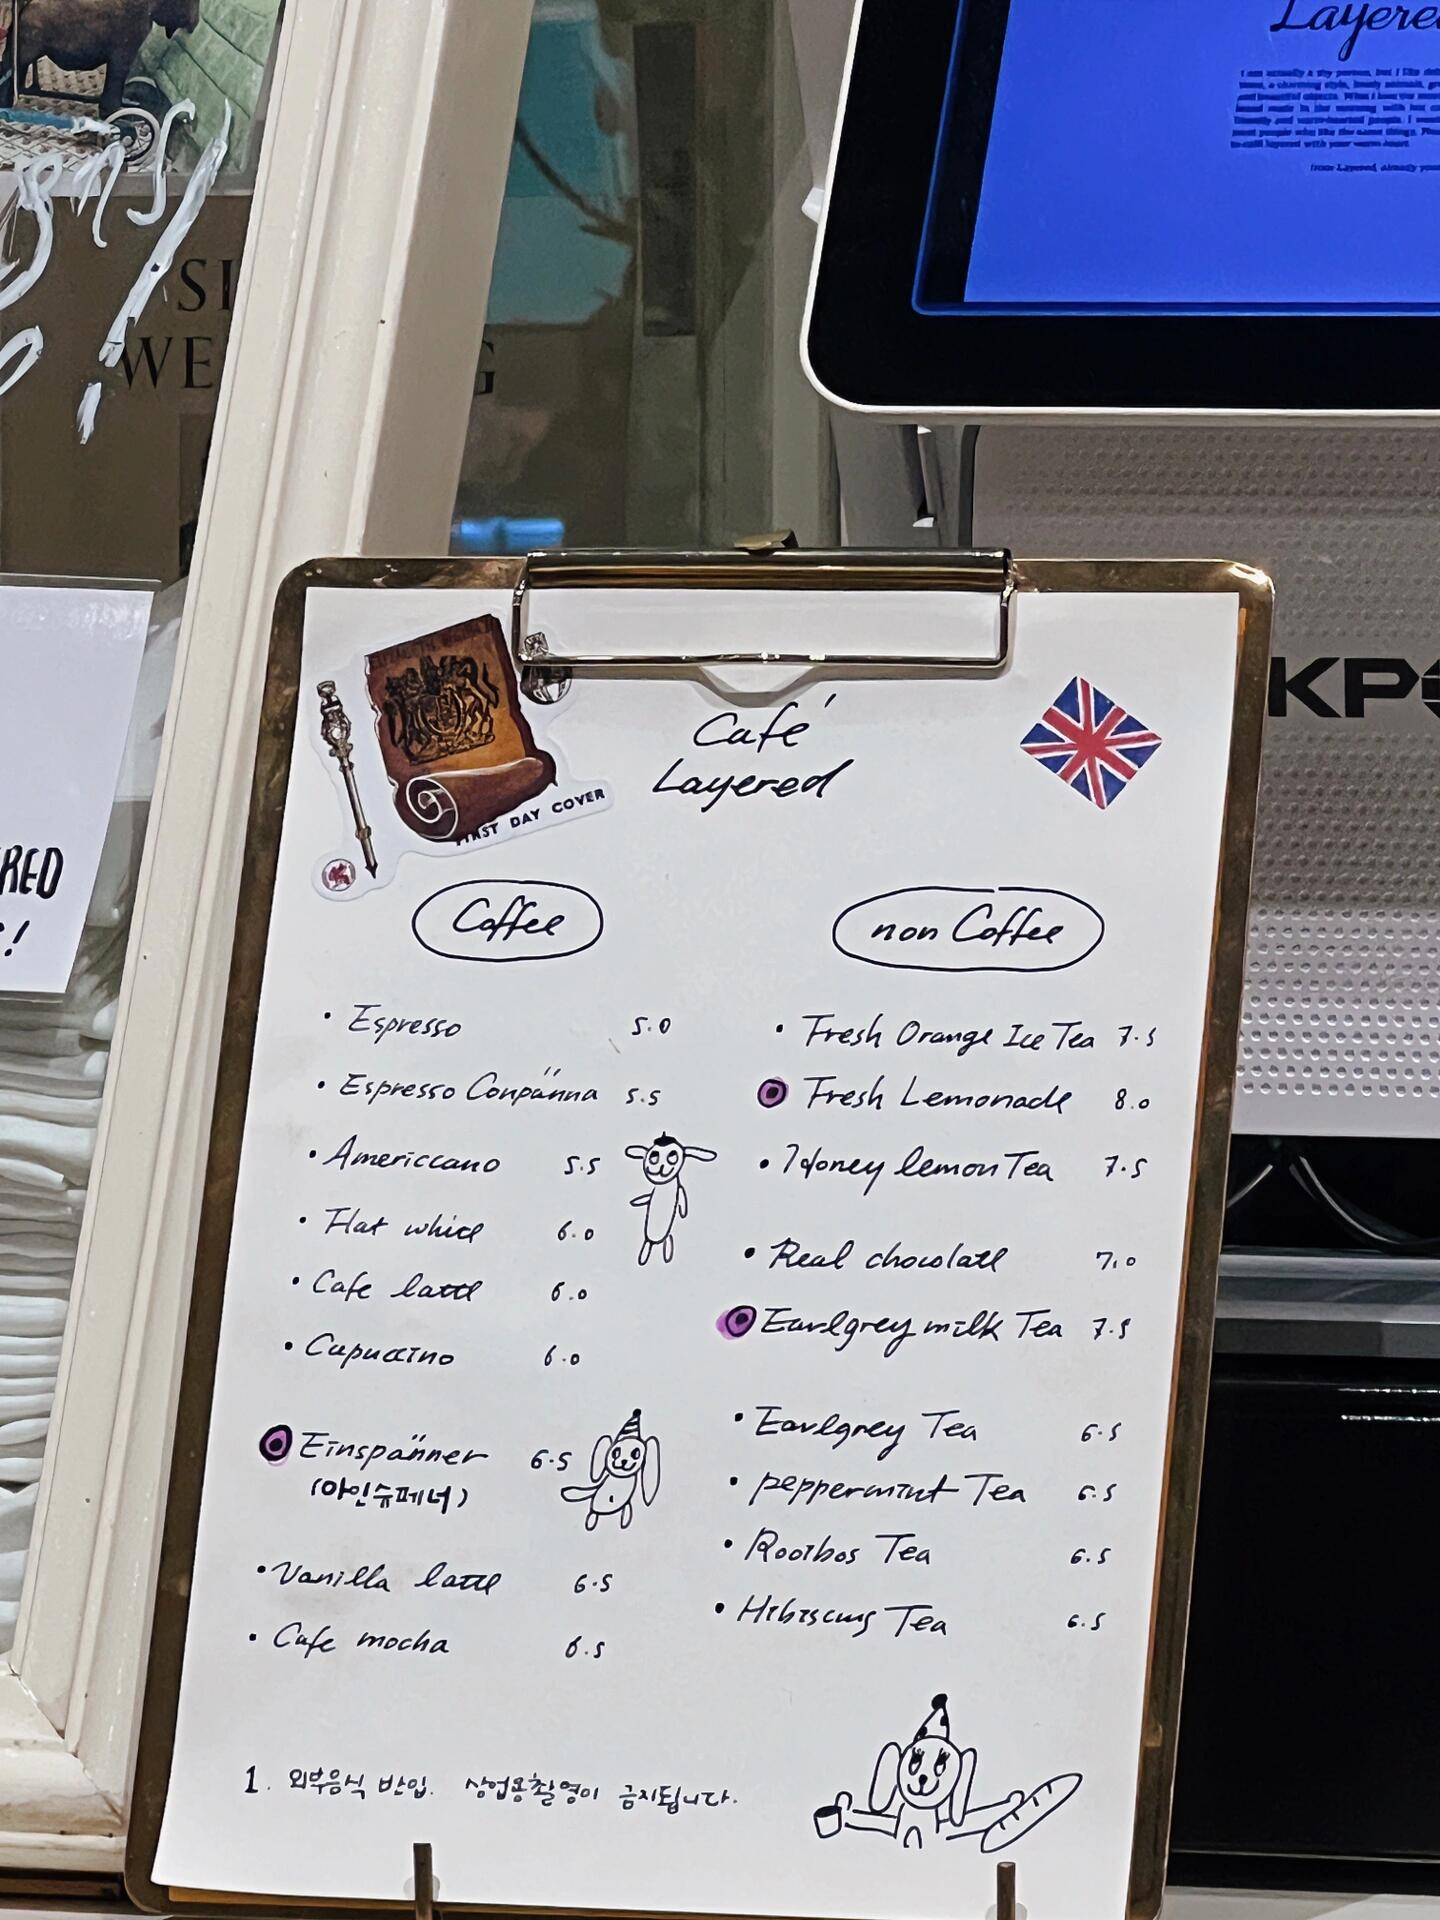 Layered
SI
WE G
KPO
RED
!
FIRST DAY COVER
Café
Layered
Coffee
• Espresso 5.0
• Espresso Conpänna 5.5
• Americcano 5.5
• Flat white 6.0
• Cafe latte 6.0
• Capuccino 6.0
Einspänner 6.5
(아인슈페너)
• Vanilla latte 6.5
• Cafe mocha 6.5
non Coffee
• Fresh Orange Ice Tea 7.5
Fresh Lemonade 8.0
• Honey lemon Tea 7.5
• Real chocolate 7.0
Earlgrey milk Tea 7.5
• Earlgrey Tea 6.5
• peppermint Tea 6.5
• Rooibos Tea 6.5
• Hibiscus Tea 6.5
1. 외부음식 반입. 상업용촬영이 금지됩니다.